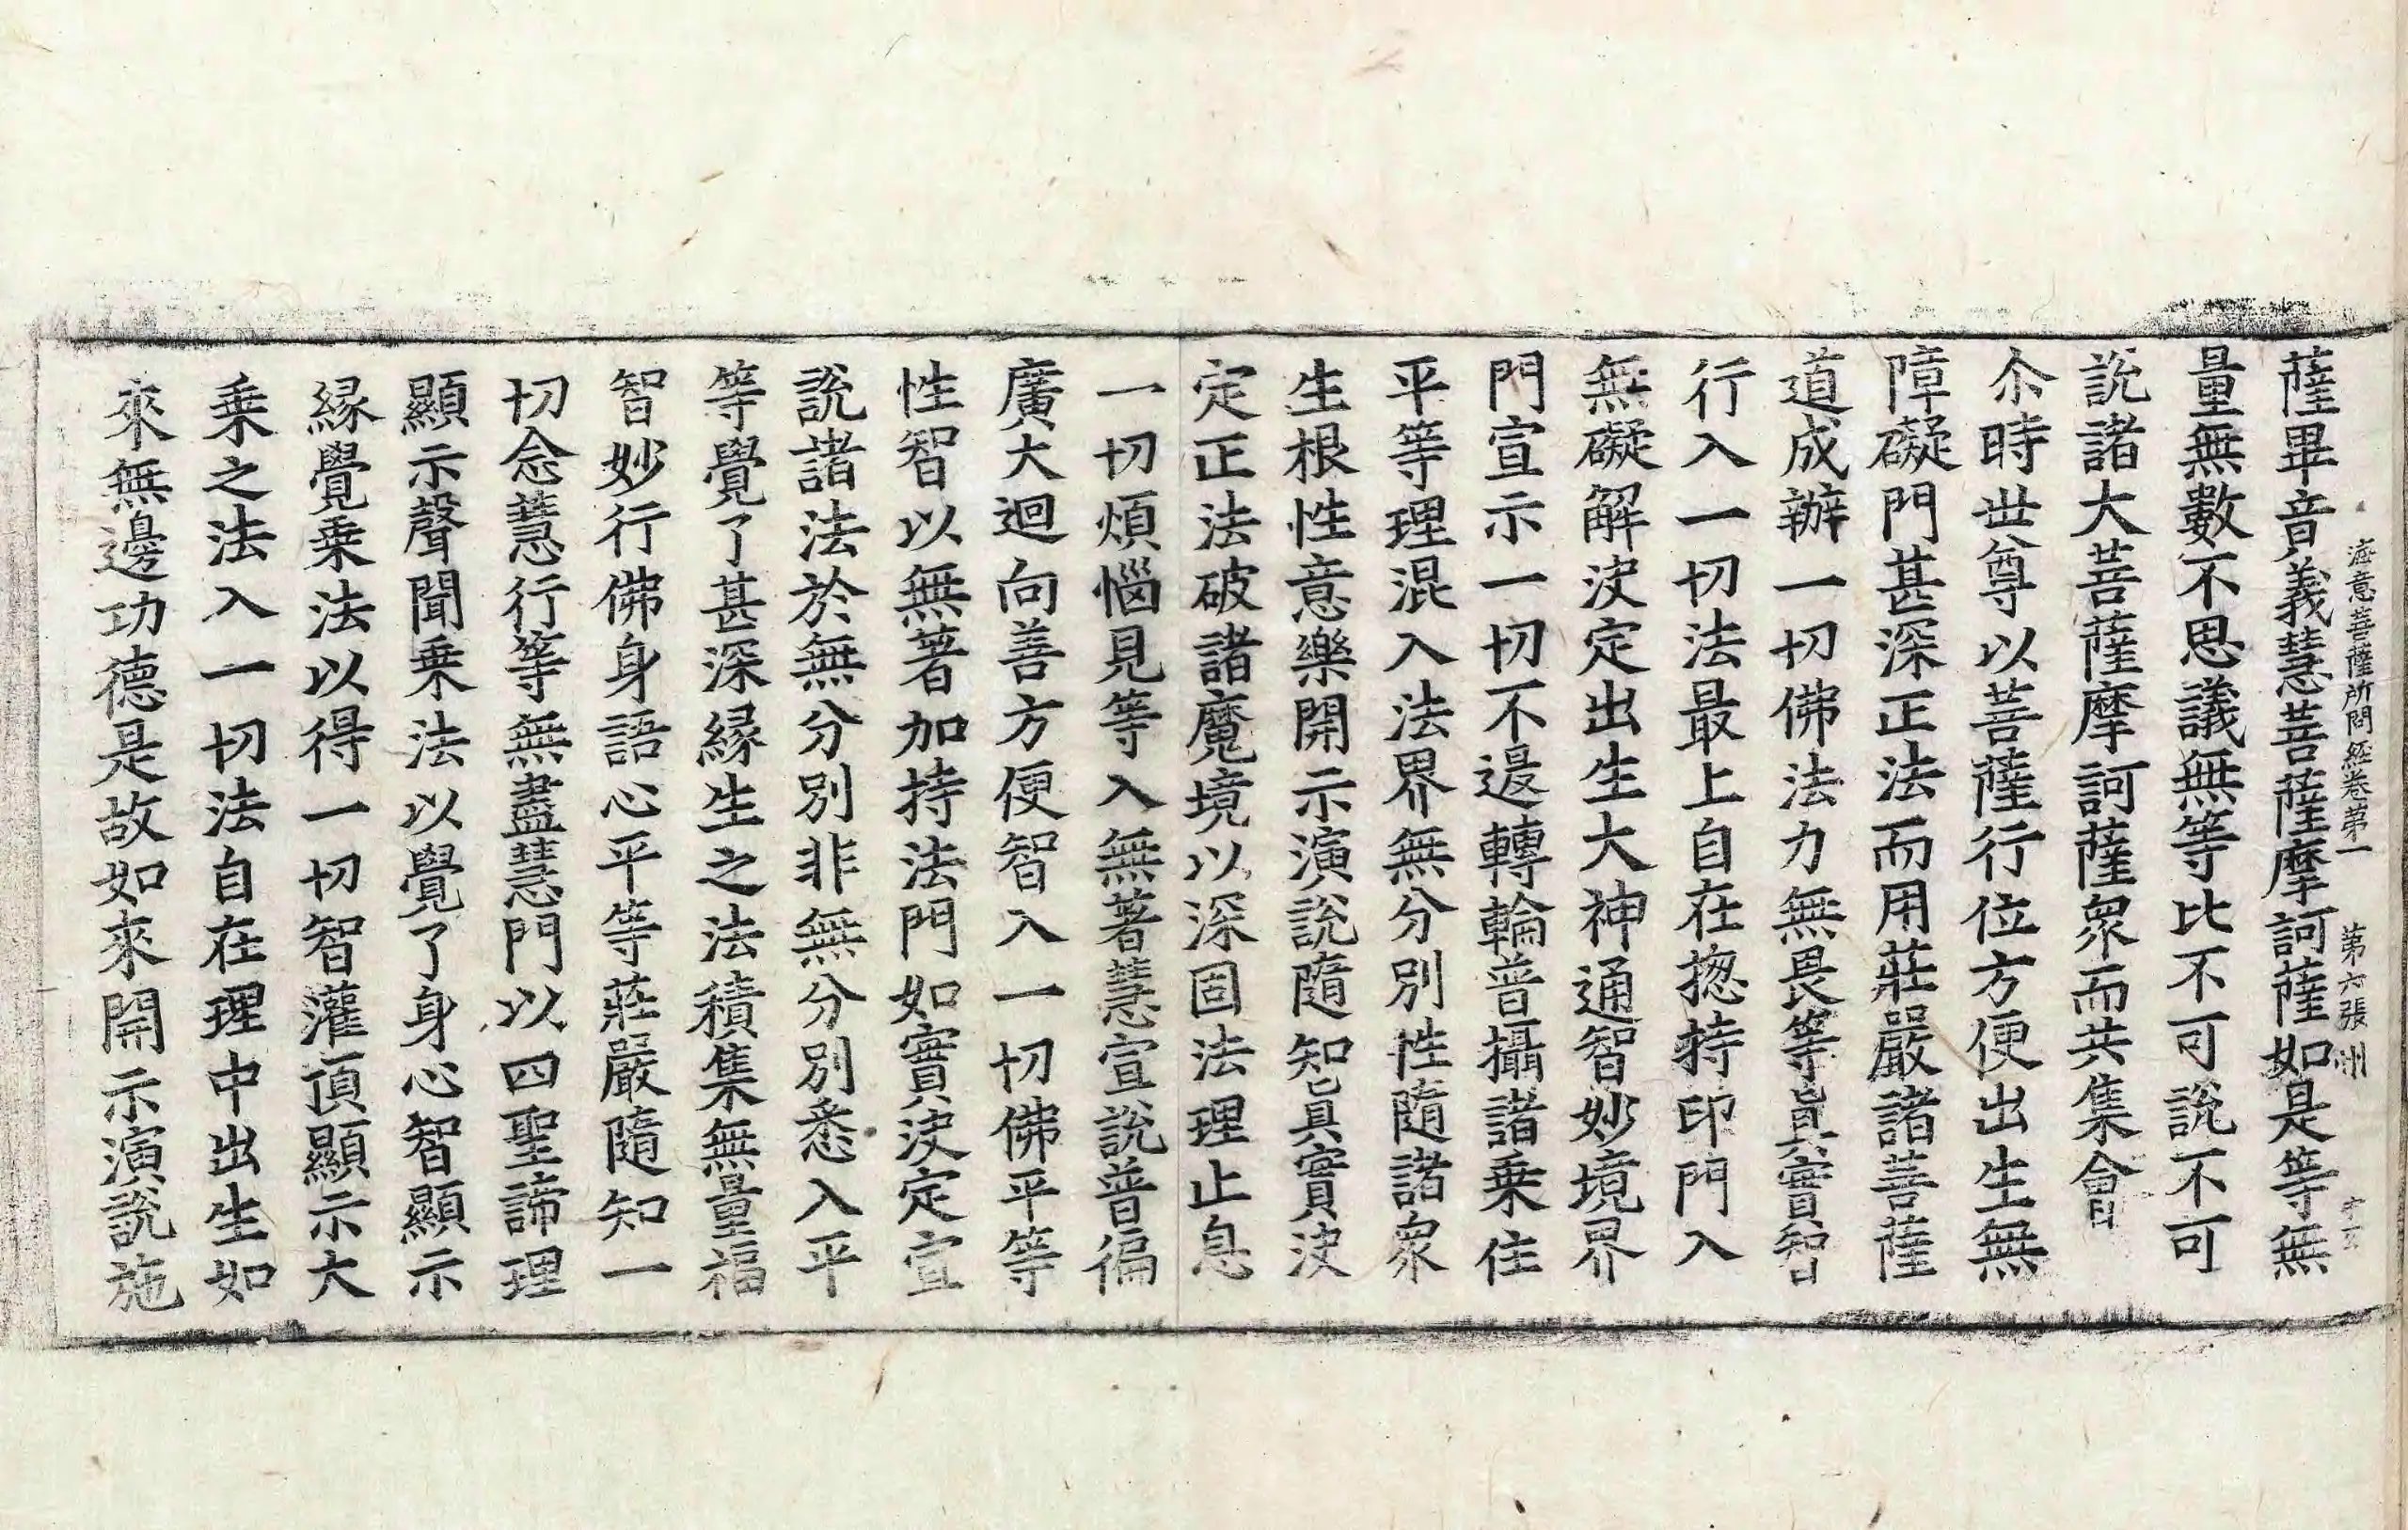 海意菩薩所問經卷第一　第六張　洲
薩畢音義慧菩薩摩訶薩如是等無
量無數不思議無等比不可說不可
說諸大菩薩摩訶薩眾而共集會
尒時世尊以菩薩行位方便出生無
障礙門甚深正法而用莊嚴諸菩薩
道成辦一切佛法力無畏等真實智
行入一切法最上自在揔持印門入
無礙解決定出生大神通智妙境界
門宣示一切不退轉輪普攝諸乗住
平等理混入法界無分別性隨諸眾
生根性意樂開示演說隨知真實決
定正法破諸魔境以深固法理止息
一切煩惱見等入無著慧宣說普徧
廣大迴向善方便智入一切佛平等
性智以無著加持法門如實決定宣
說諸法於無分別非無分別悉入平
等覺了甚深緣生之法積集無量福
智妙行佛身語心平等莊嚴隨知一
切念慧行等無盡慧門以四聖諦理
顯示聲聞乗法以覺了身心智顯示
緣覺乗法以得一切智灌頂顯示大
乗之法入一切法自在理中出生如
來無邊功德是故如來開示演說施